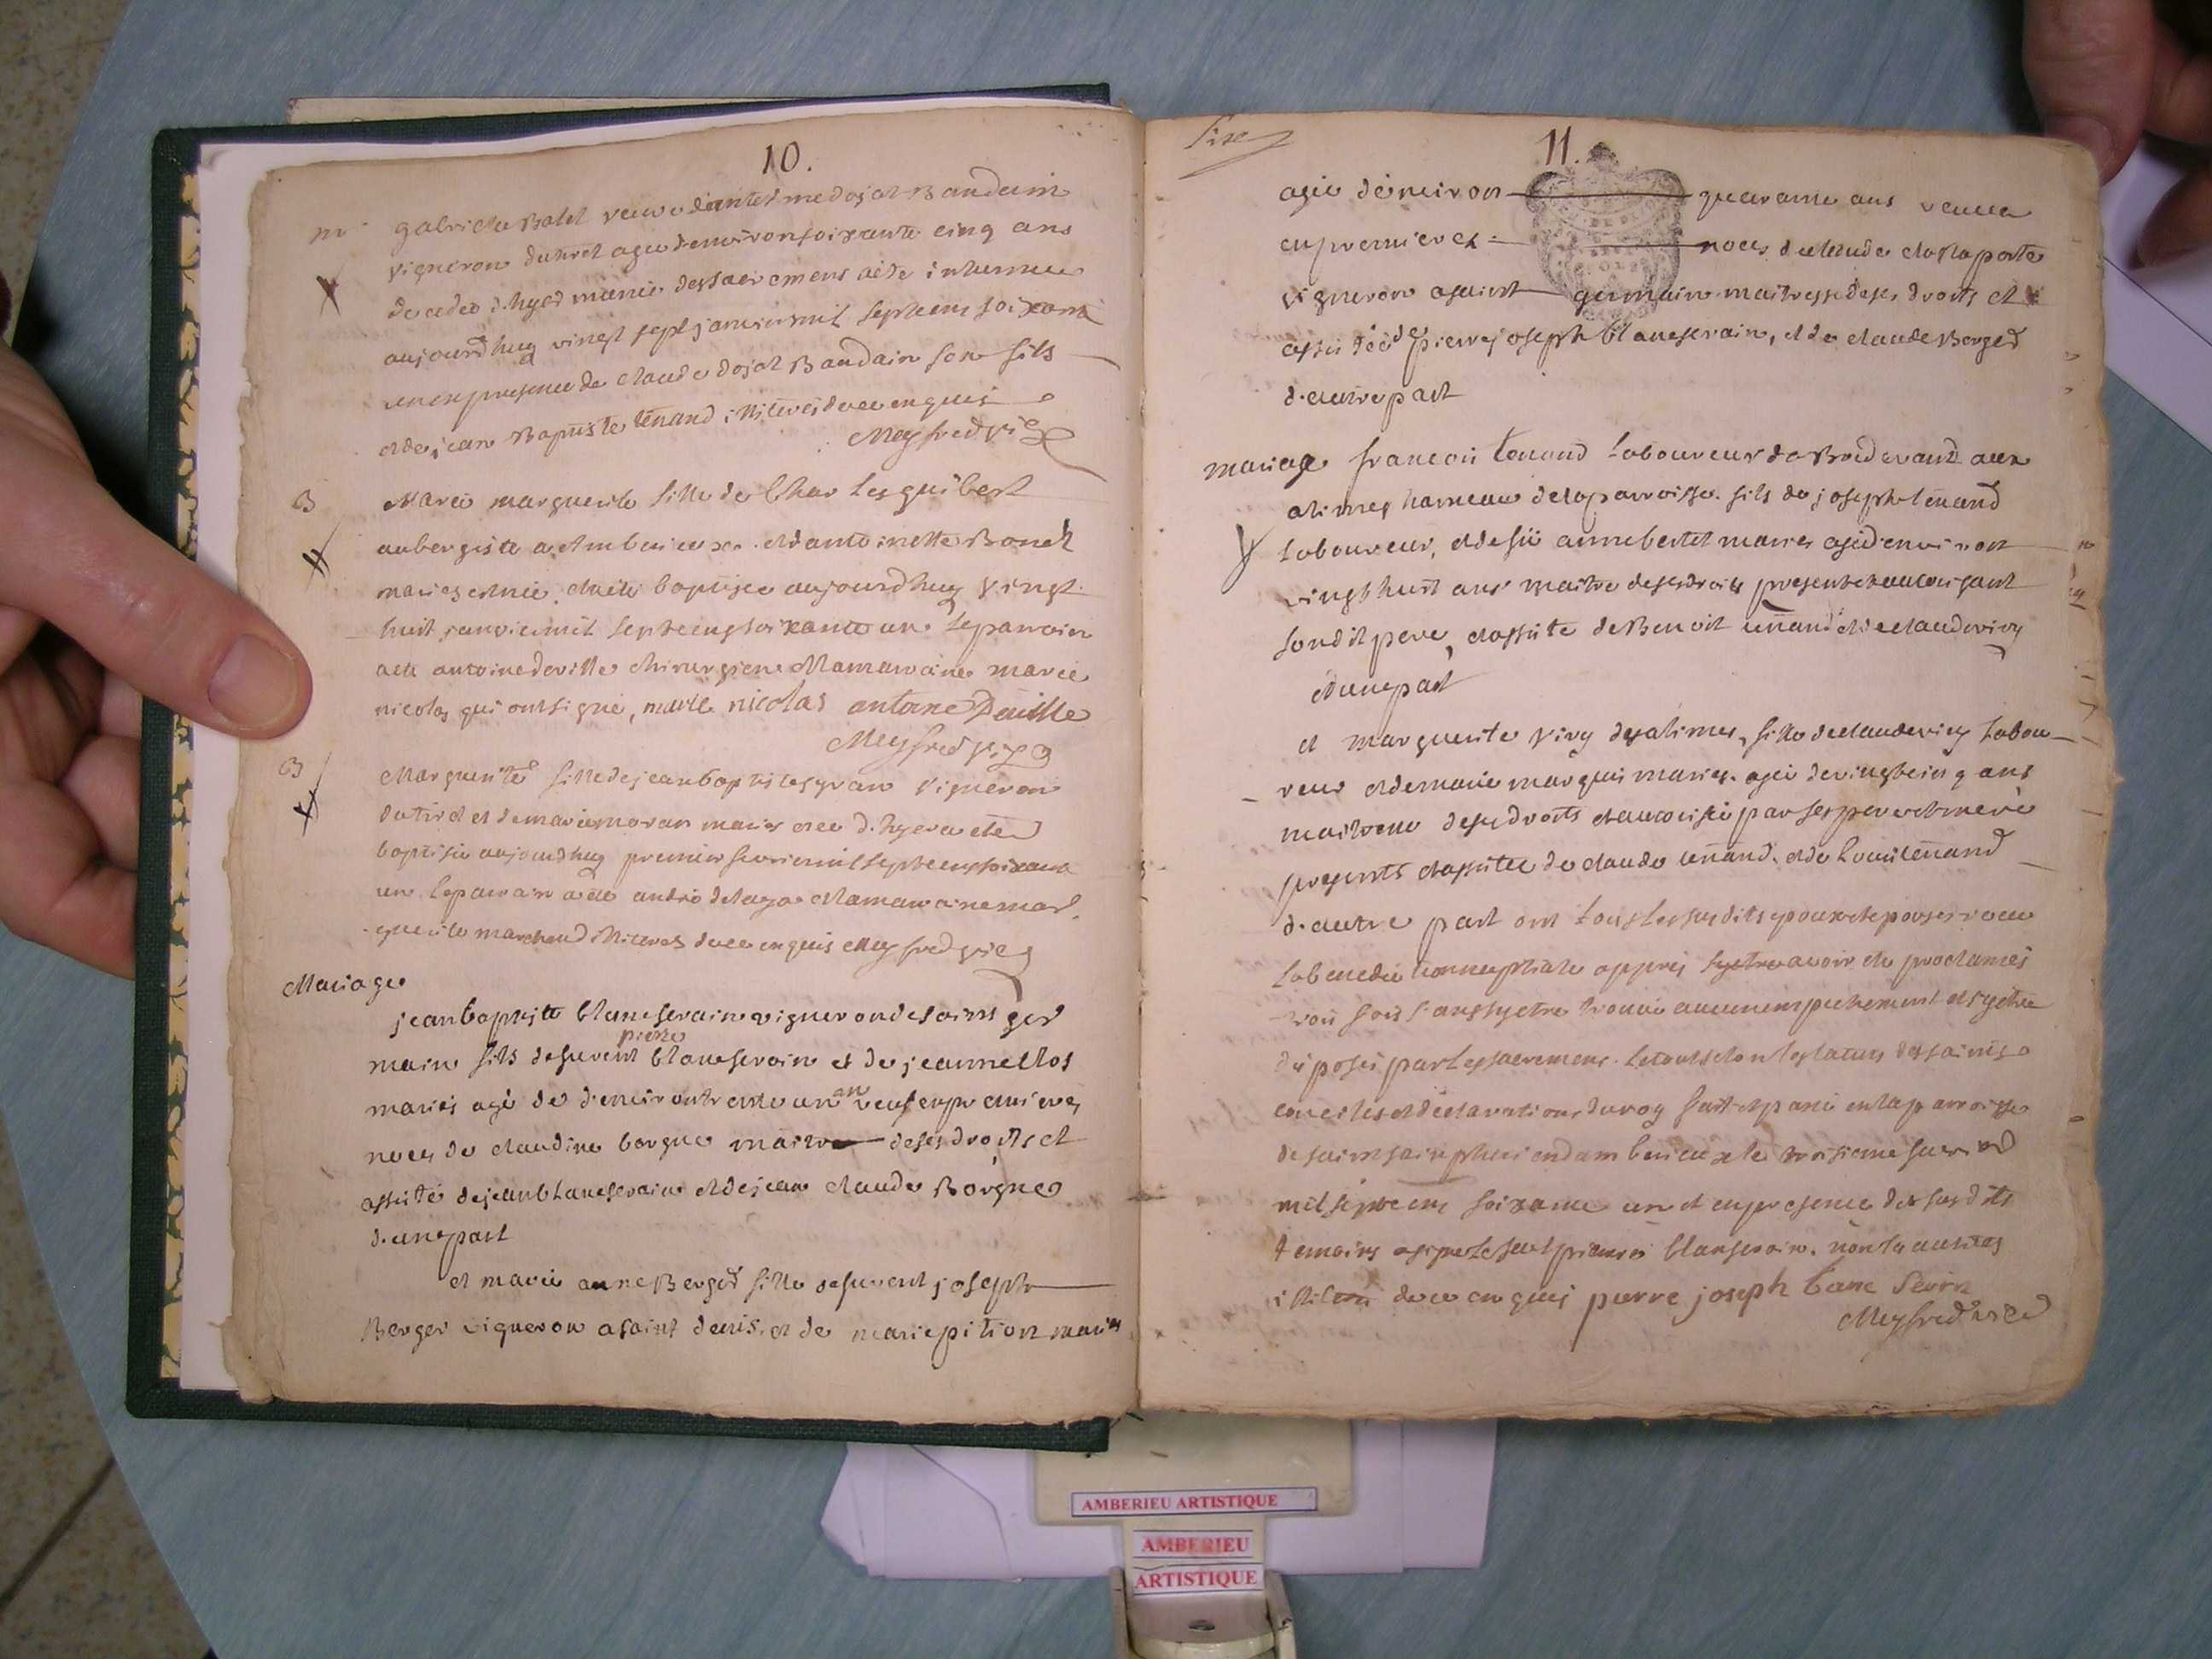 10.
m gabrielle Balet veuve dantelme dojat Baudain
vigneron du tiret agee denviron soixante cinq ans
decedeé d.hyer munie des sacremens aété inhumee
aujourdhuy vingt sept janvier mil septcens soixante
un en presence de claude dojat Baudain son fils
et de jean Baptiste tenand illiteres de ce enquis
Meyfred vic
B Marie marguerite fille de Charles guibert
aubergiste a Amberieux et dantoinette Bonet
mariés est née et aété baptisee aujourdhuy vingt
huit janvier mil septcens soixante un le parrain
aété antoine deville chirurgien et la marraine marie
nicolas qui ont signé, marie nicolas antoine Deville
Meyfred vic
B Marguerite fille de jean baptiste gran vigneron
du tiret et de marie moran mariés née d.hyer a été
baptisée aujourdhuy premier fevrier mil septcens soixante
un le parrain a été andré delaga et la marraine mar
guerite marchand illiteres de ce enquis Meyfred vic
Mariage
jean baptiste blanc serain vigneron de saint ger
main fils de furent pierre blanc serain et de jeanne
mariés agé de denviron trente un an veuf en premieres
noces de claudine borgne maitre de ses droits et
assisté de jean blanc serain et de jean claude Borgne
d.une part
et marie anne Berger fille de furent joseph
Berger vigneron a saint denis et de marie pition mariés
11.
agée denviron quarante ans veuve
en premieres noces de claude delaporte
vigneron a saint germain maitresse de ses droits et
assistée de pierre joseph blanc serain, et de claude Berger
d.autre part
mariage francois tenand laboureur de
alimes hameau de la parroisse fils de joseph tenand
laboureur, et de fü anne bertet mariés agé denviron
vingt huit ans maitre de ses droits present et autorisant
son dit pere, et assisté de Benoit tenand et de claude viry
d'une part
et marguerite viry des alimes, fille de claude viry labou
reur et de marie marquis mariés agée de vingt cinq ans
maitresse de ses droits et autorisée par ses pere et mere
presents et assistee de claude tenand et de louis tenand
d.autre part ont tous les susdits epoux et epouses receu
la benediction nuptiale apprés sy etre avoir été proclamés
trois fois sans sy etre trouvé aucun empechement et sy etre
disposés par les sacremens. le tout selon les statuts des saints
conciles et declarations du roy fait et passé en la parroisse
de saint saimphorien dam berieux le troisieme fevrier
mil septcens soixante un et en presence des susdits
temoins a signé le seul pierre blanc serain. non les autres
illiterés de ce enquis pierre joseph banc serin
Meyfred vic
AMBERIEU ARTISTIQUE
AMBERIEU
ARTISTIQUE